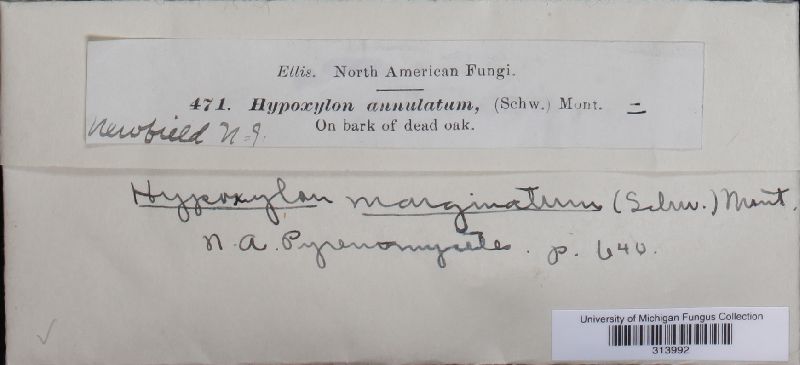 Ellis. North American Fungi.
471. Hypoxylon annulatum, (Schw.) Mont. =
Newfield N.J.
On bark of dead oak.
Hypoxylon marginatum (Schw.) Mont.
N. A. Pyrenomycetes. p. 640.
University of Michigan Fungus Collection
313992